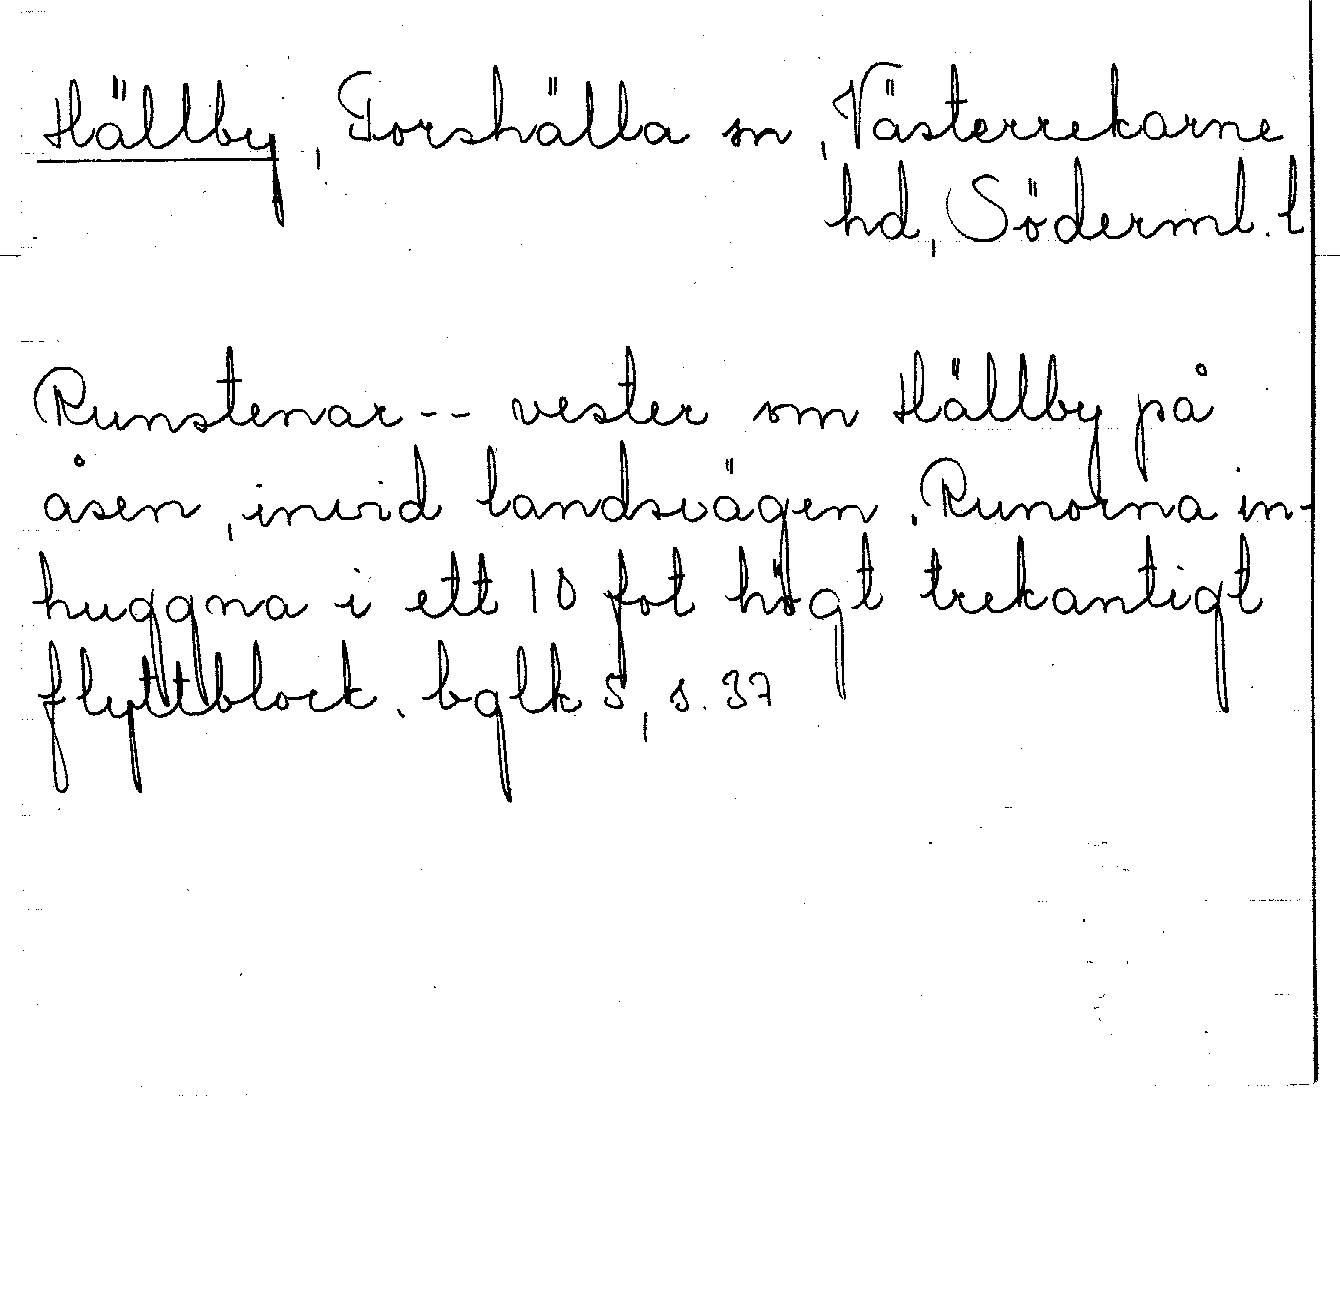 Hällby, Torshälla sn, Västerrekarne
hd, Söderml. l
Runstenar -- vester om Hällby på
åsen, invid landsvägen. Runorna in-
huggna i ett 10 fot högt trekantigt
flyttblock. bglk 5, s. 37